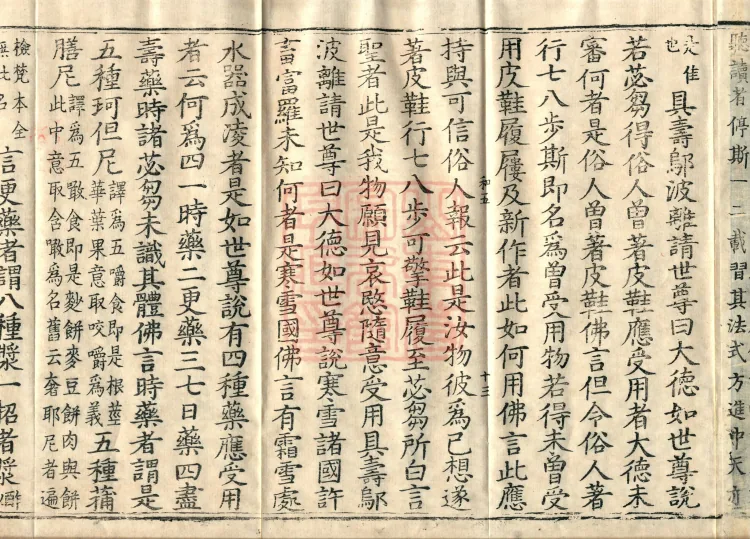 聽讀者停斯一二載習其法式方進中天
是佳
也
具壽鄔波離請世尊曰大德如世尊說
若苾芻得俗人曾著皮鞋應受用者大德未
審何者是俗人曾著皮鞋佛言但令俗人著
行七八步斯即名爲曾受用物若得未曾受
用皮鞋履屨及新作者此如何用佛言此應
和五
十三
持與可信俗人報云此是汝物彼爲己想遂
著皮鞋行七八步可擎鞋履至苾芻所白言
聖者此是我物願見哀愍隨意受用具壽鄔
波離請世尊曰大德如世尊說寒雪諸國許
畜富羅未知何者是寒雪國佛言有霜雪處
水器成凌者是如世尊說有四種藥應受用
者云何爲四一時藥二更藥三七日藥四盡
壽藥時諸苾芻未識其體佛言時藥者謂是
五種珂但尼
譯爲五嚼食即是根莖
華葉果意取咬嚼爲義
五種蒲
膳尼
譯爲五噉食即是麨餅麥豆餅肉與餅
此中意取含噉爲名舊云奢耶尼者遍
檢梵本全
無此名
言更藥者謂八種漿一招者漿